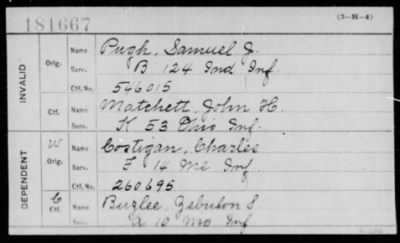 181667
(3-H-4)
INVALID
Orig.
Name Pugh, Samuel J.
Serv. B 124 Ind Inf
Ctf. No. 546015
Ctf.
Name Matchett, John H.
Serv. K 53 Ohio Inf.
DEPENDENT
W
Orig.
Name Costigan, Charles
Serv. F 14 Me Inf
Ctf. No. 260695
C
Ctf.
Name Zebulon S
Serv. 10 Mo Inf